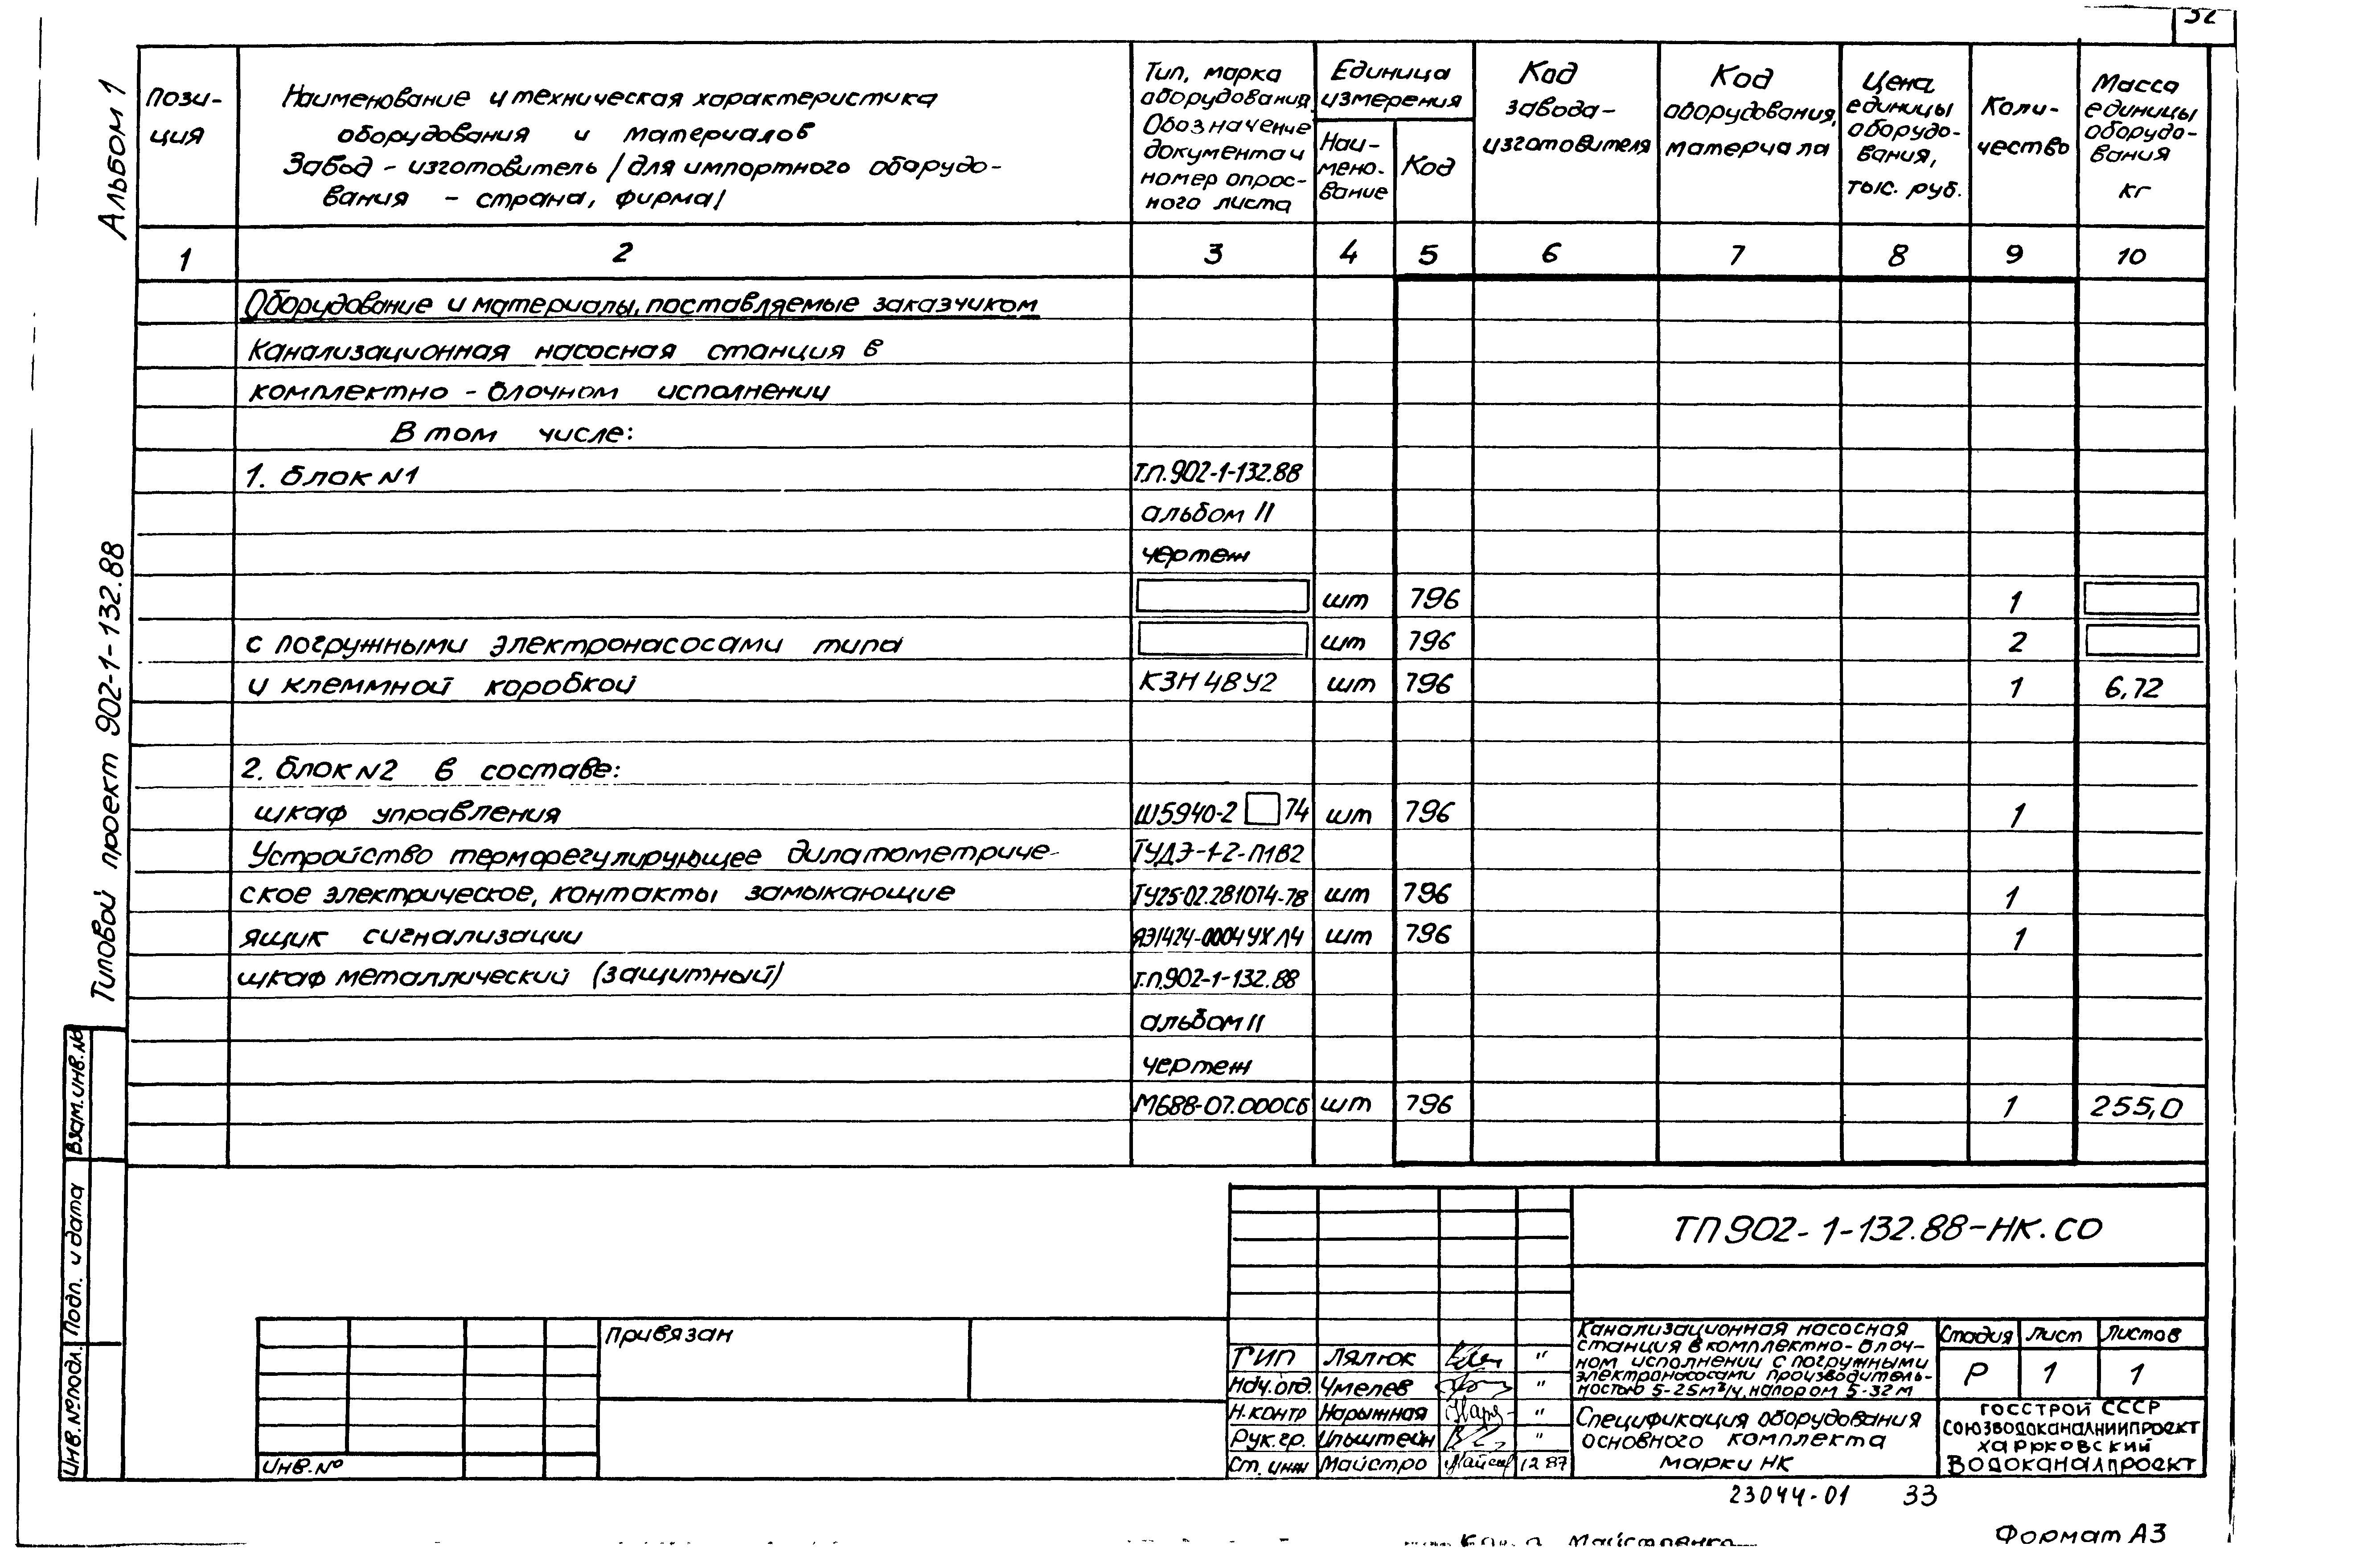 32
Альбом 1
Типовой проект 902-1-132.88
Взам.инв.№
Подп. и дата
Инв.№подл.
Пози-
ция
Наименование и техническая характеристика
оборудования и материалов
Завод - изготовитель /для импортного оборудо-
вания - страна, фирма/
Тип, марка
оборудования
Обозначение
документа и
номер опрос-
ного листа
Единица
измерения
Наи-
мено-
вание
Код
Код
завода-
изготовителя
Код
оборудования,
материала
Цена
единицы
оборудо-
вания,
тыс. руб.
Коли-
чество
Масса
единицы
оборудо-
вания
кг
1 2 3 4 5 6 7 8 9 10
Оборудование и материалы, поставляемые заказчиком
Канализационная насосная станция в
комплектно - блочном исполнении
В том числе:
1. блок N1 Т.П.902-1-132.88
альбом II
чертеж
шт 796 1
с погружными электронасосами типа шт 796 2
и клеммной коробкой КЗН 48У2 шт 796 1 6,72
2. блок N2 в составе:
шкаф управления Ш5940-2 74 шт 796 1
Устройство терморегулирующее дилатометриче- ТУДЭ-1-2-П1В2
ское электрическое, контакты замыкающие ТУ25-02.281074-78 шт 796 1
ящик сигнализации ЯЭ1424-0004УХЛ4 шт 796 1
шкаф металлический (защитный) т.п.902-1-132.88
альбом II
чертеж
М688-07.000СБ шт 796 1 255,0
ТП 902-1-132.88-НК.СО
Привязан
Инв.№
ГИП Лялюк "
Нач.отд. Чмелев "
Н.контр Нарыжная "
Рук.гр. Ильштейн "
Ст. инж Майстро 12 87
Канализационная насосная
станция в комплектно-блоч-
ном исполнении с погружными
электронасосами производитель-
ностью 5-25м³/ч, напором 5-32м
Стадия Лист Листов
Р 1 1
Спецификация оборудования
основного комплекта
марки НК
ГОССТРОЙ СССР
Союзводоканалниипроект
Харьковский
Водоканалпроект
23044-01 33
Формат А3